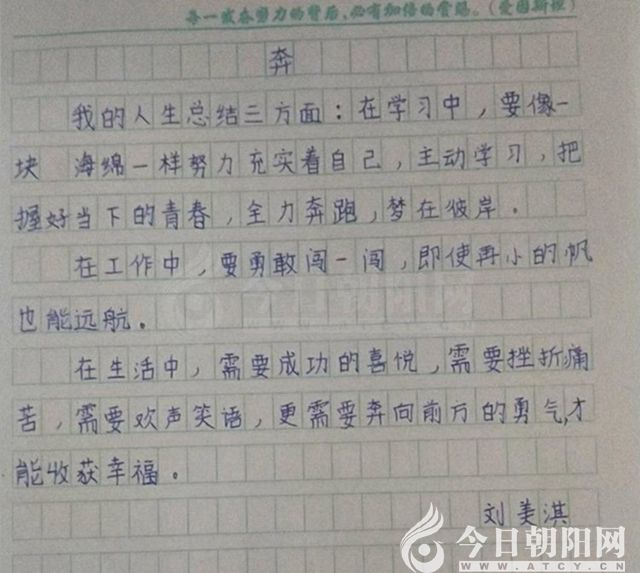 每一次在努力的背后,必有加倍的赏赐。(爱因斯坦)
奔
我的人生总结三方面：在学习中，要像一
块 海绵一样努力充实着自己，主动学习，把
握好当下的青春，全力奔跑，梦在彼岸．
在工作中，要勇敢闯一闯，即使再小的帆
也能远航。
在生活中，需要成功的喜悦，需要挫折痛
苦，需要欢声笑语，更需要奔向前方的勇气，才
能收获幸福。
刘美淇
今日朝阳网
今日朝阳网
WWW.ATCY.CN